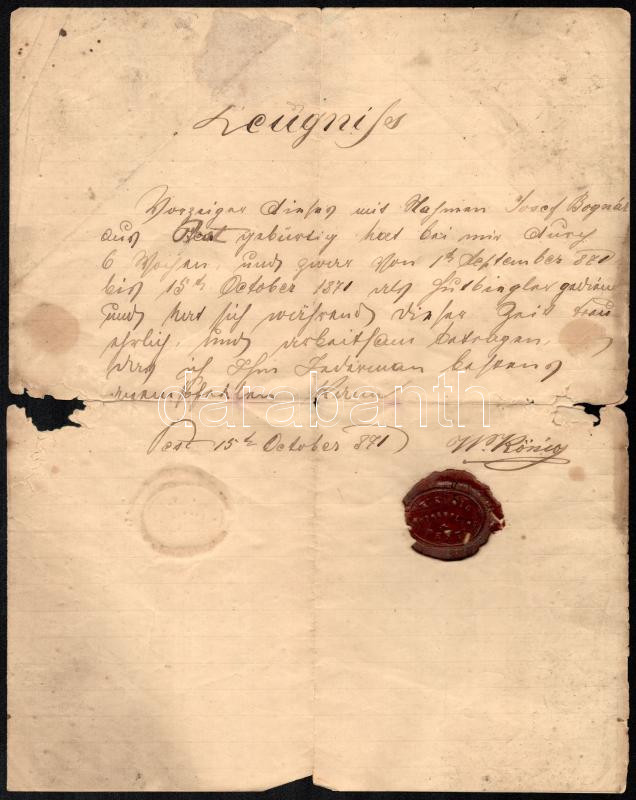 Zeugniss
Vorzeiger dieses mit Nahmen Josef Bognár
aus Pest gebürtig hat bei mir durch
6 Wochen, und zwar von 1ten September 871
bis 15ten October 1871 als Hutbiegler gedien
und hat sich während dieser Zeit treu
ehrlich, und arbeitsam betragen,
das ich Ihm Jederman bestens
anempfehlen kann
Pest 15ten October 871 W. König
darabanth
www.darabanth.com